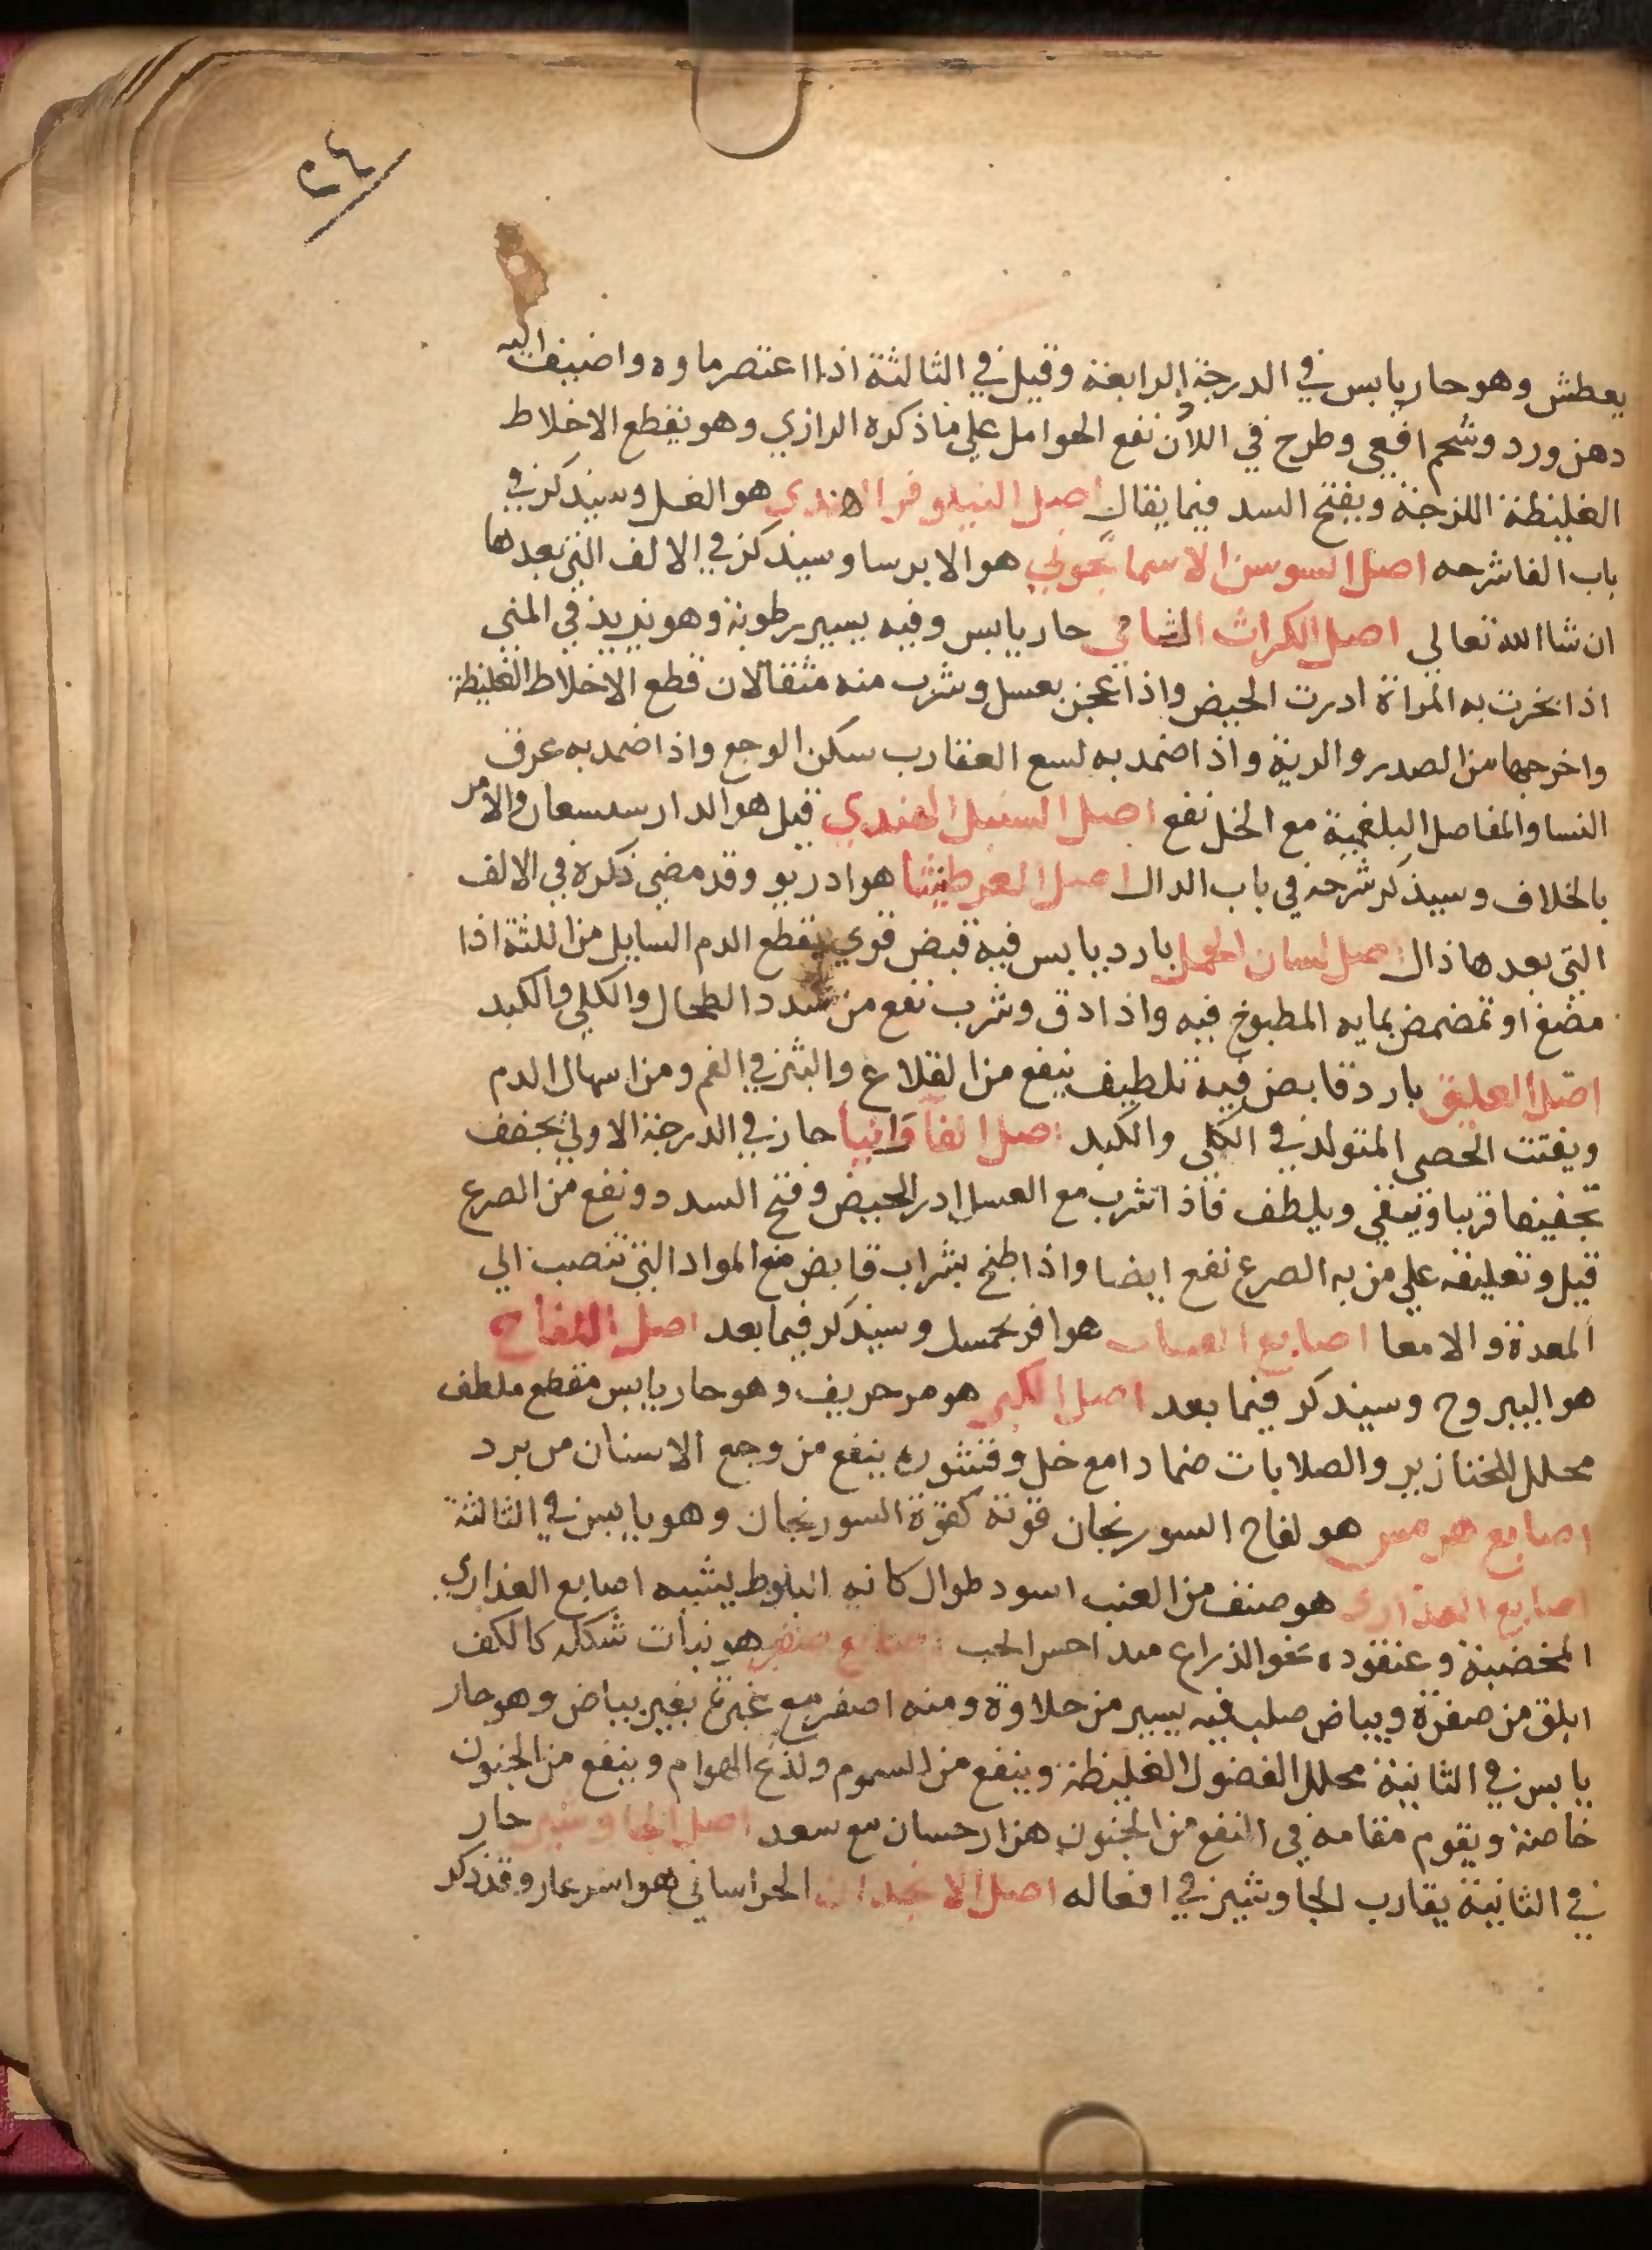 ٢٤
يعطش وهو حار يابس في الدرجة الرابعة وقيل في الثالثة اذا اعتصر ماوه واضيفت اليه
دهن ورد وشحم افعي وطرح في الاذن نفع الحوامل علي ما ذكره الرازي وهو يقطع الاخلاط
الغليظة اللزجة ويفتح السدد فيما يقال اصل النيلوفر الهندي هو الغسل وسيذكر في
باب الفا شرحه اصل السوسن الاسمانجوني هو الايرسا وسيذكر في الالف التي بعدها
ان شا الله تعالي اصل الكراث الشامي حار يابس وفيه يسير رطوبة وهو يزيد في المني
اذا بخرت به المراة ادرت الحيض واذا عجن بعسل وشرب منه مثقالان قطع الاخلاط الغليظة
واخرجها من الصدر والرية واذا ضمد به لسع العقارب سكن الوجع واذا ضمد به عرق
النسا والمفاصل البلغمية مع الخل نفع اصل السنبل الهندي قيل هو الدارسسعان والامر
بالخلاف وسيذكر شرحه في باب الدال اصل العرطنيثا هو ادريو وقد مضي ذكره في الالف
التي بعدها ذال اصل لسان الحمل بارد يابس فيه قبض قوي يقطع الدم السايل من اللثة اذا
مضغ او تمضمض بمايه المطبوخ فيه واذا دق وشرب نفع من سدد الطحال والكلي والكبد
اصل العليق بارد قابض فيه تلطيف ينفع من القلاع والبثر في الفم ومن اسهال الدم
ويفتت الحصي المتولد في الكلي والكبد اصل الفاوانيا حار في الدرجة الاولي يجفف
تجفيفا قريبا وينقي ويلطف فاذا شرب مع العسل ادر الحيض وفتح السدد ونفع من الصرع
قيل وتعليقه علي من به الصرع نفع ايضا واذا طبخ بشراب قابض منع المواد التي تنصب الي
المعدة والامعا اصابع الفتيات هو افرنجمسك وسيذكر فيما بعد اصل اللفاح
هو اليبروح وسيذكر فيما بعد اصل الكبر هو مر حريف وهو حار يابس مقطع ملطف
محلل للخنازير والصلابات ضمادا مع خل وقشوره ينفع من وجع الاسنان من برد
اصابع هرمس هو لفاح السورنجان قوته كقوة السورنجان وهو يابس في الثالثة
اصابع العذاري هو صنف من العنب اسود طوال كانه البلوط يشبه اصابع العذاري
المخضبة وعنقوده نحو الذراع احمر الحب اصابع صفر هو نبات شكله كالكف
ابلق من صفرة وبياض صلب فيه يسير من حلاوة ومنه اصفر مع غبرة بغير بياض وهو حار
يابس في الثانية محلل الفضول الغليظة وينفع من السموم ولذع الهوام وينفع من الجنون
خاصة ويقوم مقامه في النفع من الجنون هزارحسان مع سعد اصل الجاوشير حار
في الثانية يقارب الجاوشير في افعاله اصل الانجدان الخراساني هو اشرعار وقد ذكر